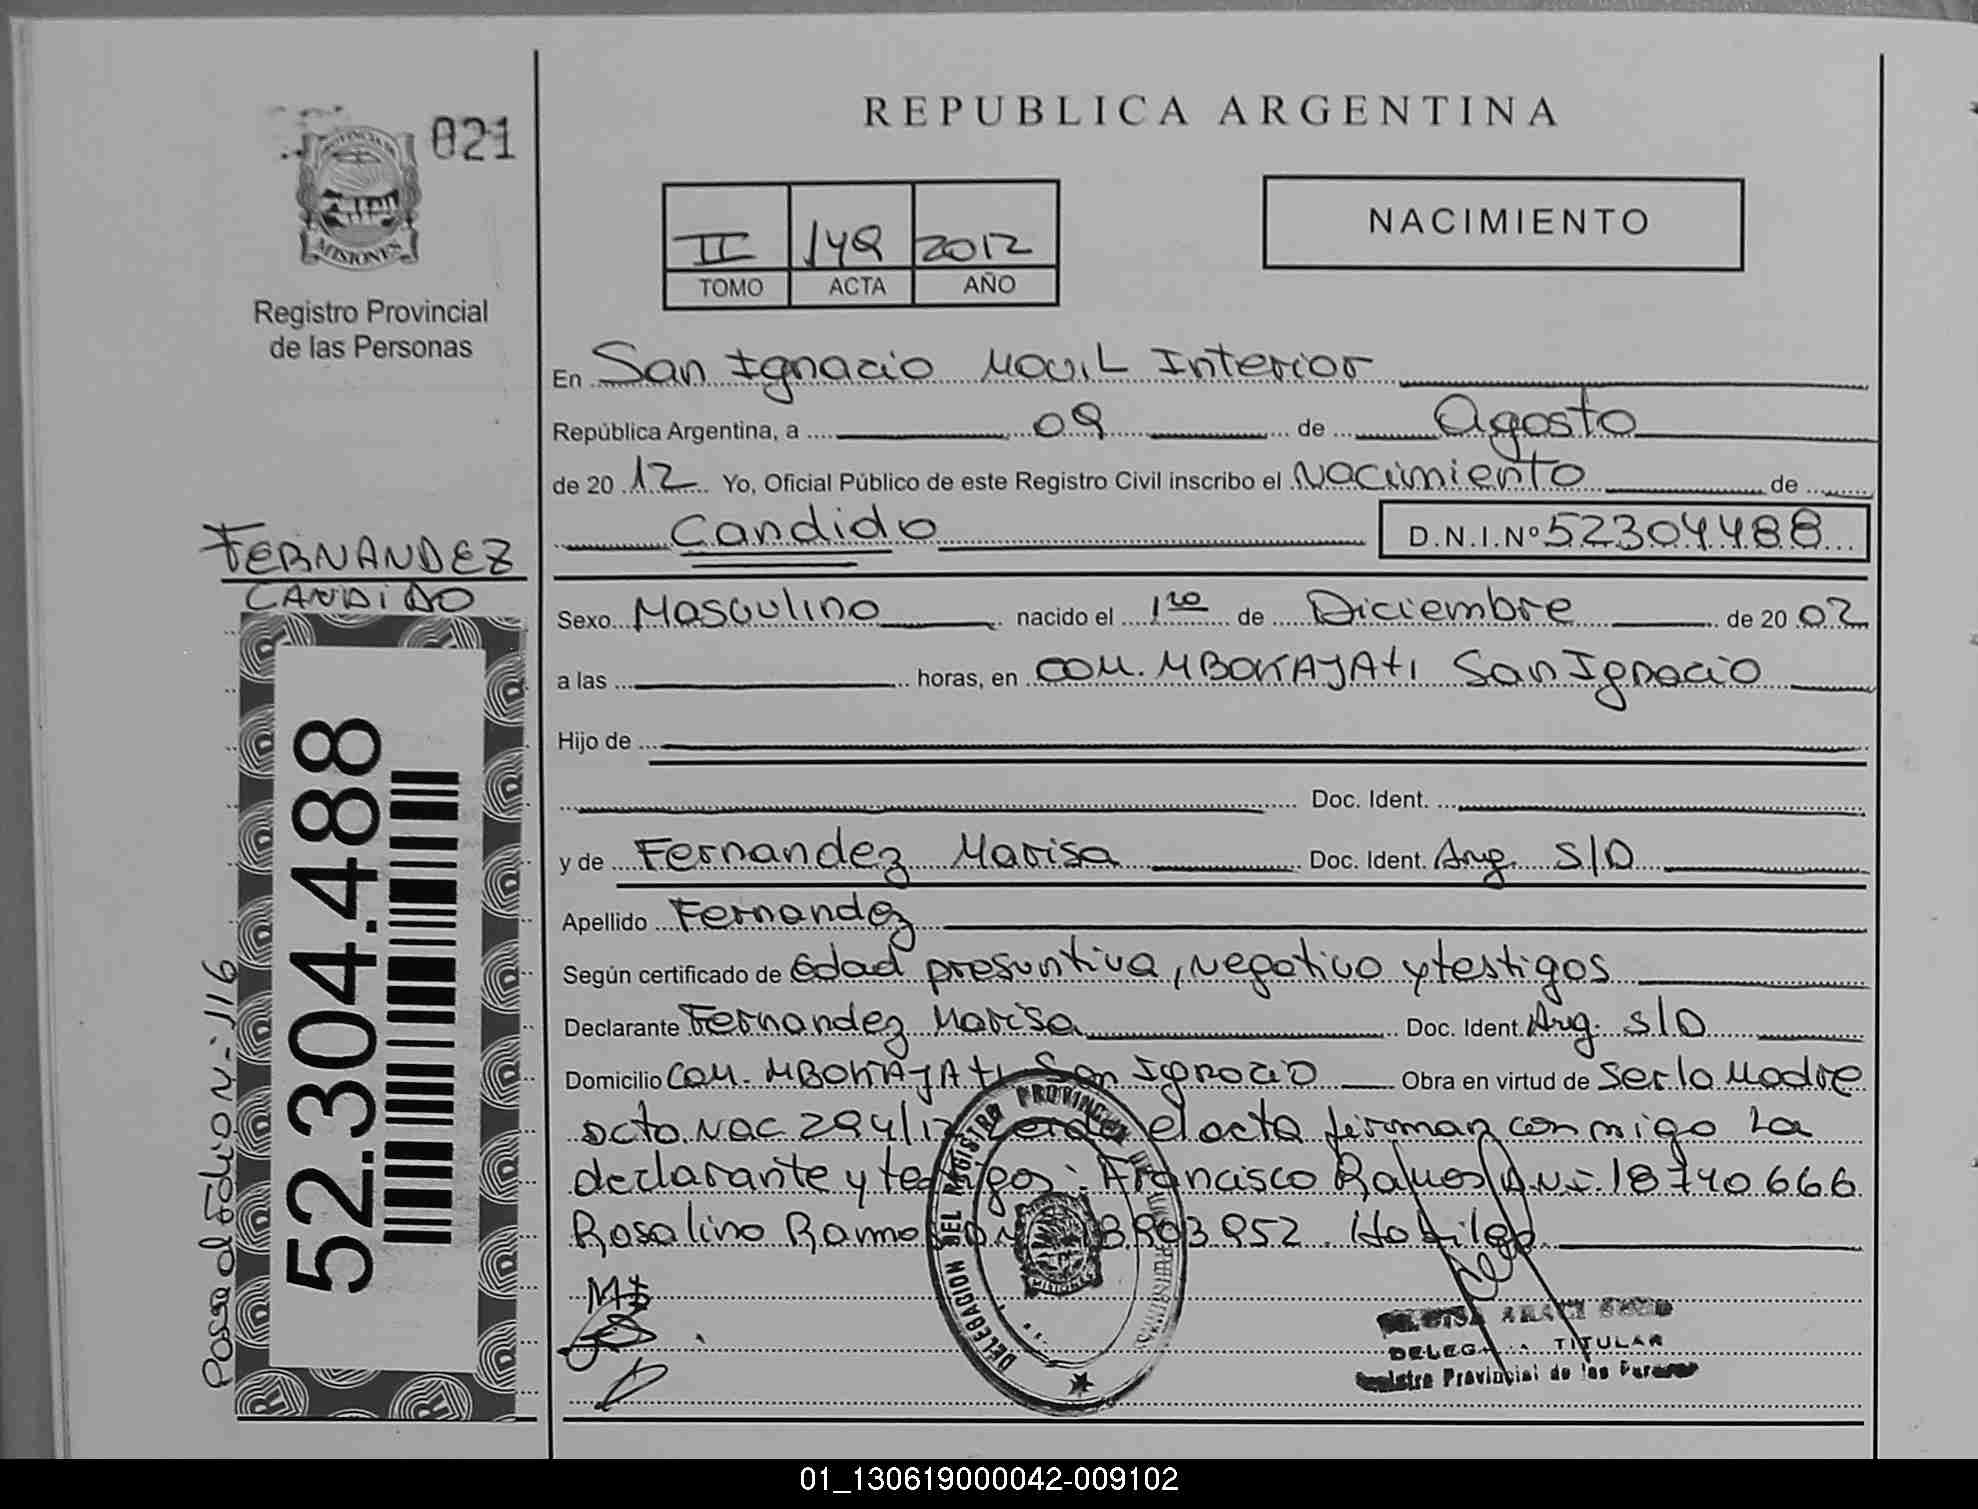 021
PROVINCIA DE
MISIONES
Registro Provincial
de las Personas
REPUBLICA ARGENTINA
NACIMIENTO
II 149 2012
TOMO ACTA AÑO
En San Ignacio Movil Interior
República Argentina, a 09 de Agosto
de 20 12 Yo, Oficial Público de este Registro Civil inscribo el Nacimiento de
Candido D.N.I.Nº 52304488
FERNANDEZ
CANDIDO
52.304.488
Pasa al Folio N: 116
Sexo Masculino nacido el 1ro de Diciembre de 20 02
a las horas, en COM. MBOKAJATI San Ignacio
Hijo de
Doc. Ident.
y de Fernandez Marisa Doc. Ident. Arg. S/D
Apellido Fernandez
Según certificado de Edad presuntiva, negativo y testigos
Declarante Fernandez Marisa Doc. Ident. Arg. S/D
Domicilio COM. MBOKAJATI San Ignacio Obra en virtud de ser la Madre
acto. Nac 294/12 el acta firman conmigo La
declarante y testigos: Francisco Ramos DNI 18740666
Rosalino Ramos
DELEGACION DEL REGISTRO PROVINCIAL DE
MISIONES
DELEG TITULAR
Registro Provincial de las Personas
01_130619000042-009102